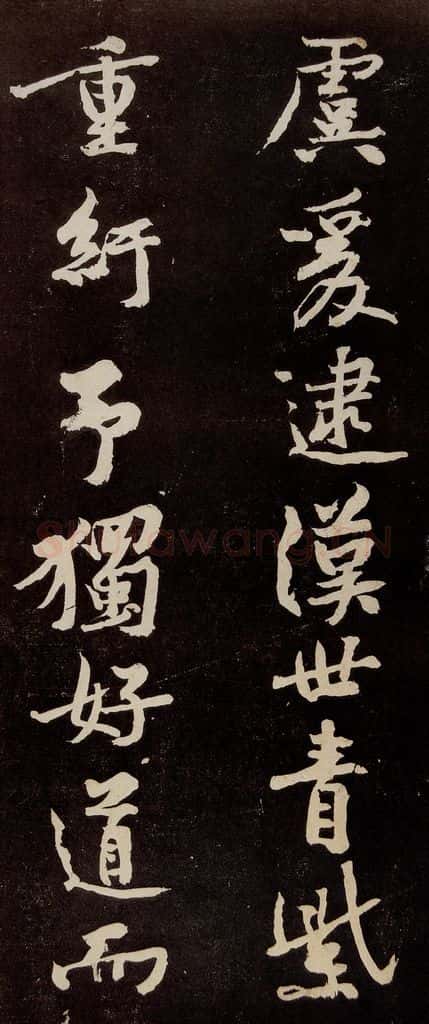 虞爰逮漢世青紫
重紆予獨好道而
Shufawang.CN